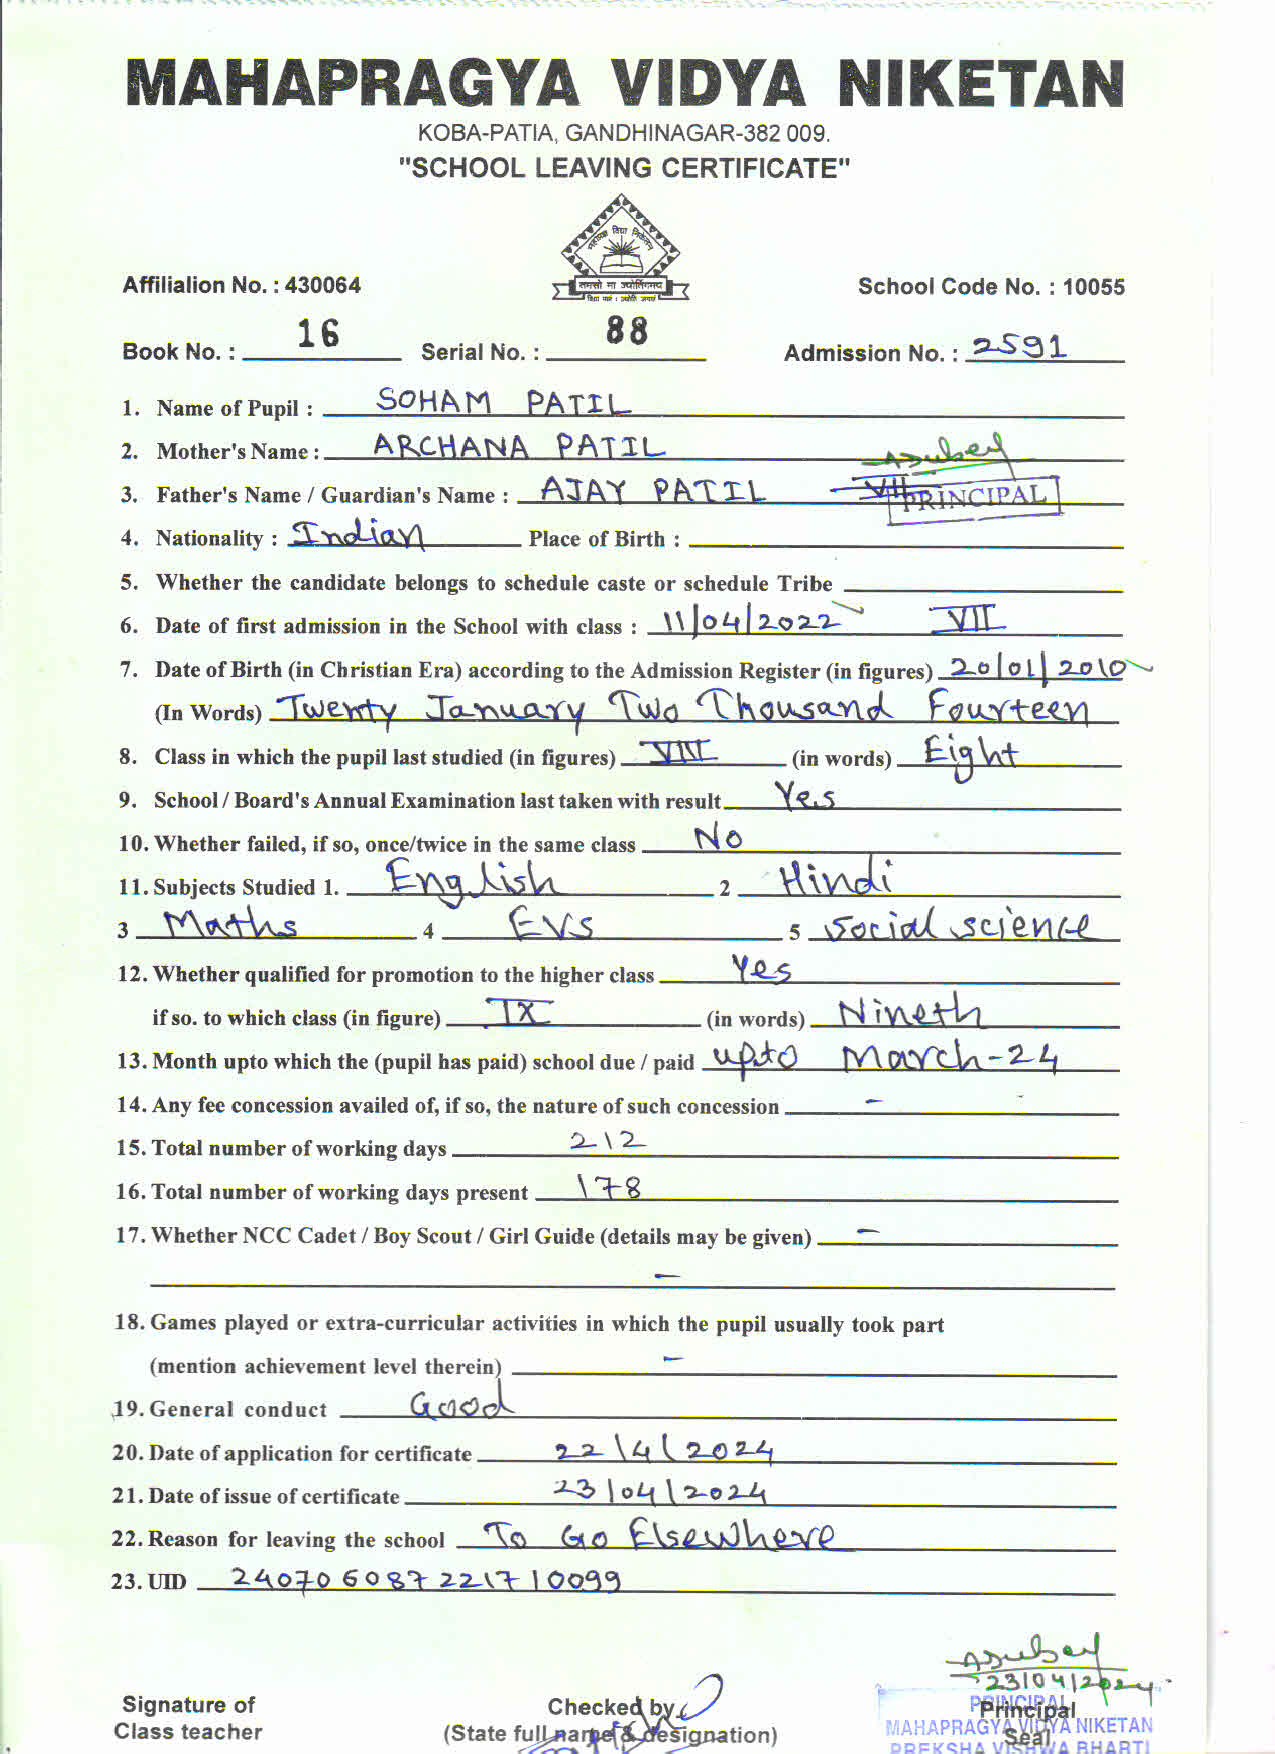 MAHAPRAGYA VIDYA NIKETAN
KOBA-PATIA, GANDHINAGAR-382 009.
"SCHOOL LEAVING CERTIFICATE"
महाप्रज्ञ विद्या निकेतन
तमसो मा ज्योतिर्गमय
Affilialion No. : 430064 School Code No. : 10055
Book No. : 16 Serial No. : 88 Admission No. : 2591
1. Name of Pupil : SOHAM PATIL
2. Mother's Name : ARCHANA PATIL ADubey
3. Father's Name / Guardian's Name : AJAY PATIL VII PRINCIPAL
4. Nationality : Indian Place of Birth :
5. Whether the candidate belongs to schedule caste or schedule Tribe
6. Date of first admission in the School with class : 11/04/2022 VII
7. Date of Birth (in Christian Era) according to the Admission Register (in figures) 20/01/2010
(In Words) Twenty January Two Thousand Fourteen
8. Class in which the pupil last studied (in figures) VIII (in words) Eight
9. School / Board's Annual Examination last taken with result Yes
10. Whether failed, if so, once/twice in the same class No
11. Subjects Studied 1. English 2 Hindi
3 Maths 4 EVS 5 Social science
12. Whether qualified for promotion to the higher class Yes
if so. to which class (in figure) IX (in words) Nineth
13. Month upto which the (pupil has paid) school due / paid upto March-24
14. Any fee concession availed of, if so, the nature of such concession -
15. Total number of working days 212
16. Total number of working days present 178
17. Whether NCC Cadet / Boy Scout / Girl Guide (details may be given) -
-
18. Games played or extra-curricular activities in which the pupil usually took part
(mention achievement level therein) -
19. General conduct Good
20. Date of application for certificate 22/4/2024
21. Date of issue of certificate 23/04/2024
22. Reason for leaving the school To Go Elsewhere
23. UID 240706087221710099
ADubey
23/04/2024
PRINCIPAL
Signature of Checked by Principal
MAHAPRAGYA VIDYA NIKETAN
Class teacher (State full name & designation) Seal
PREKSHA VISHWA BHARTI